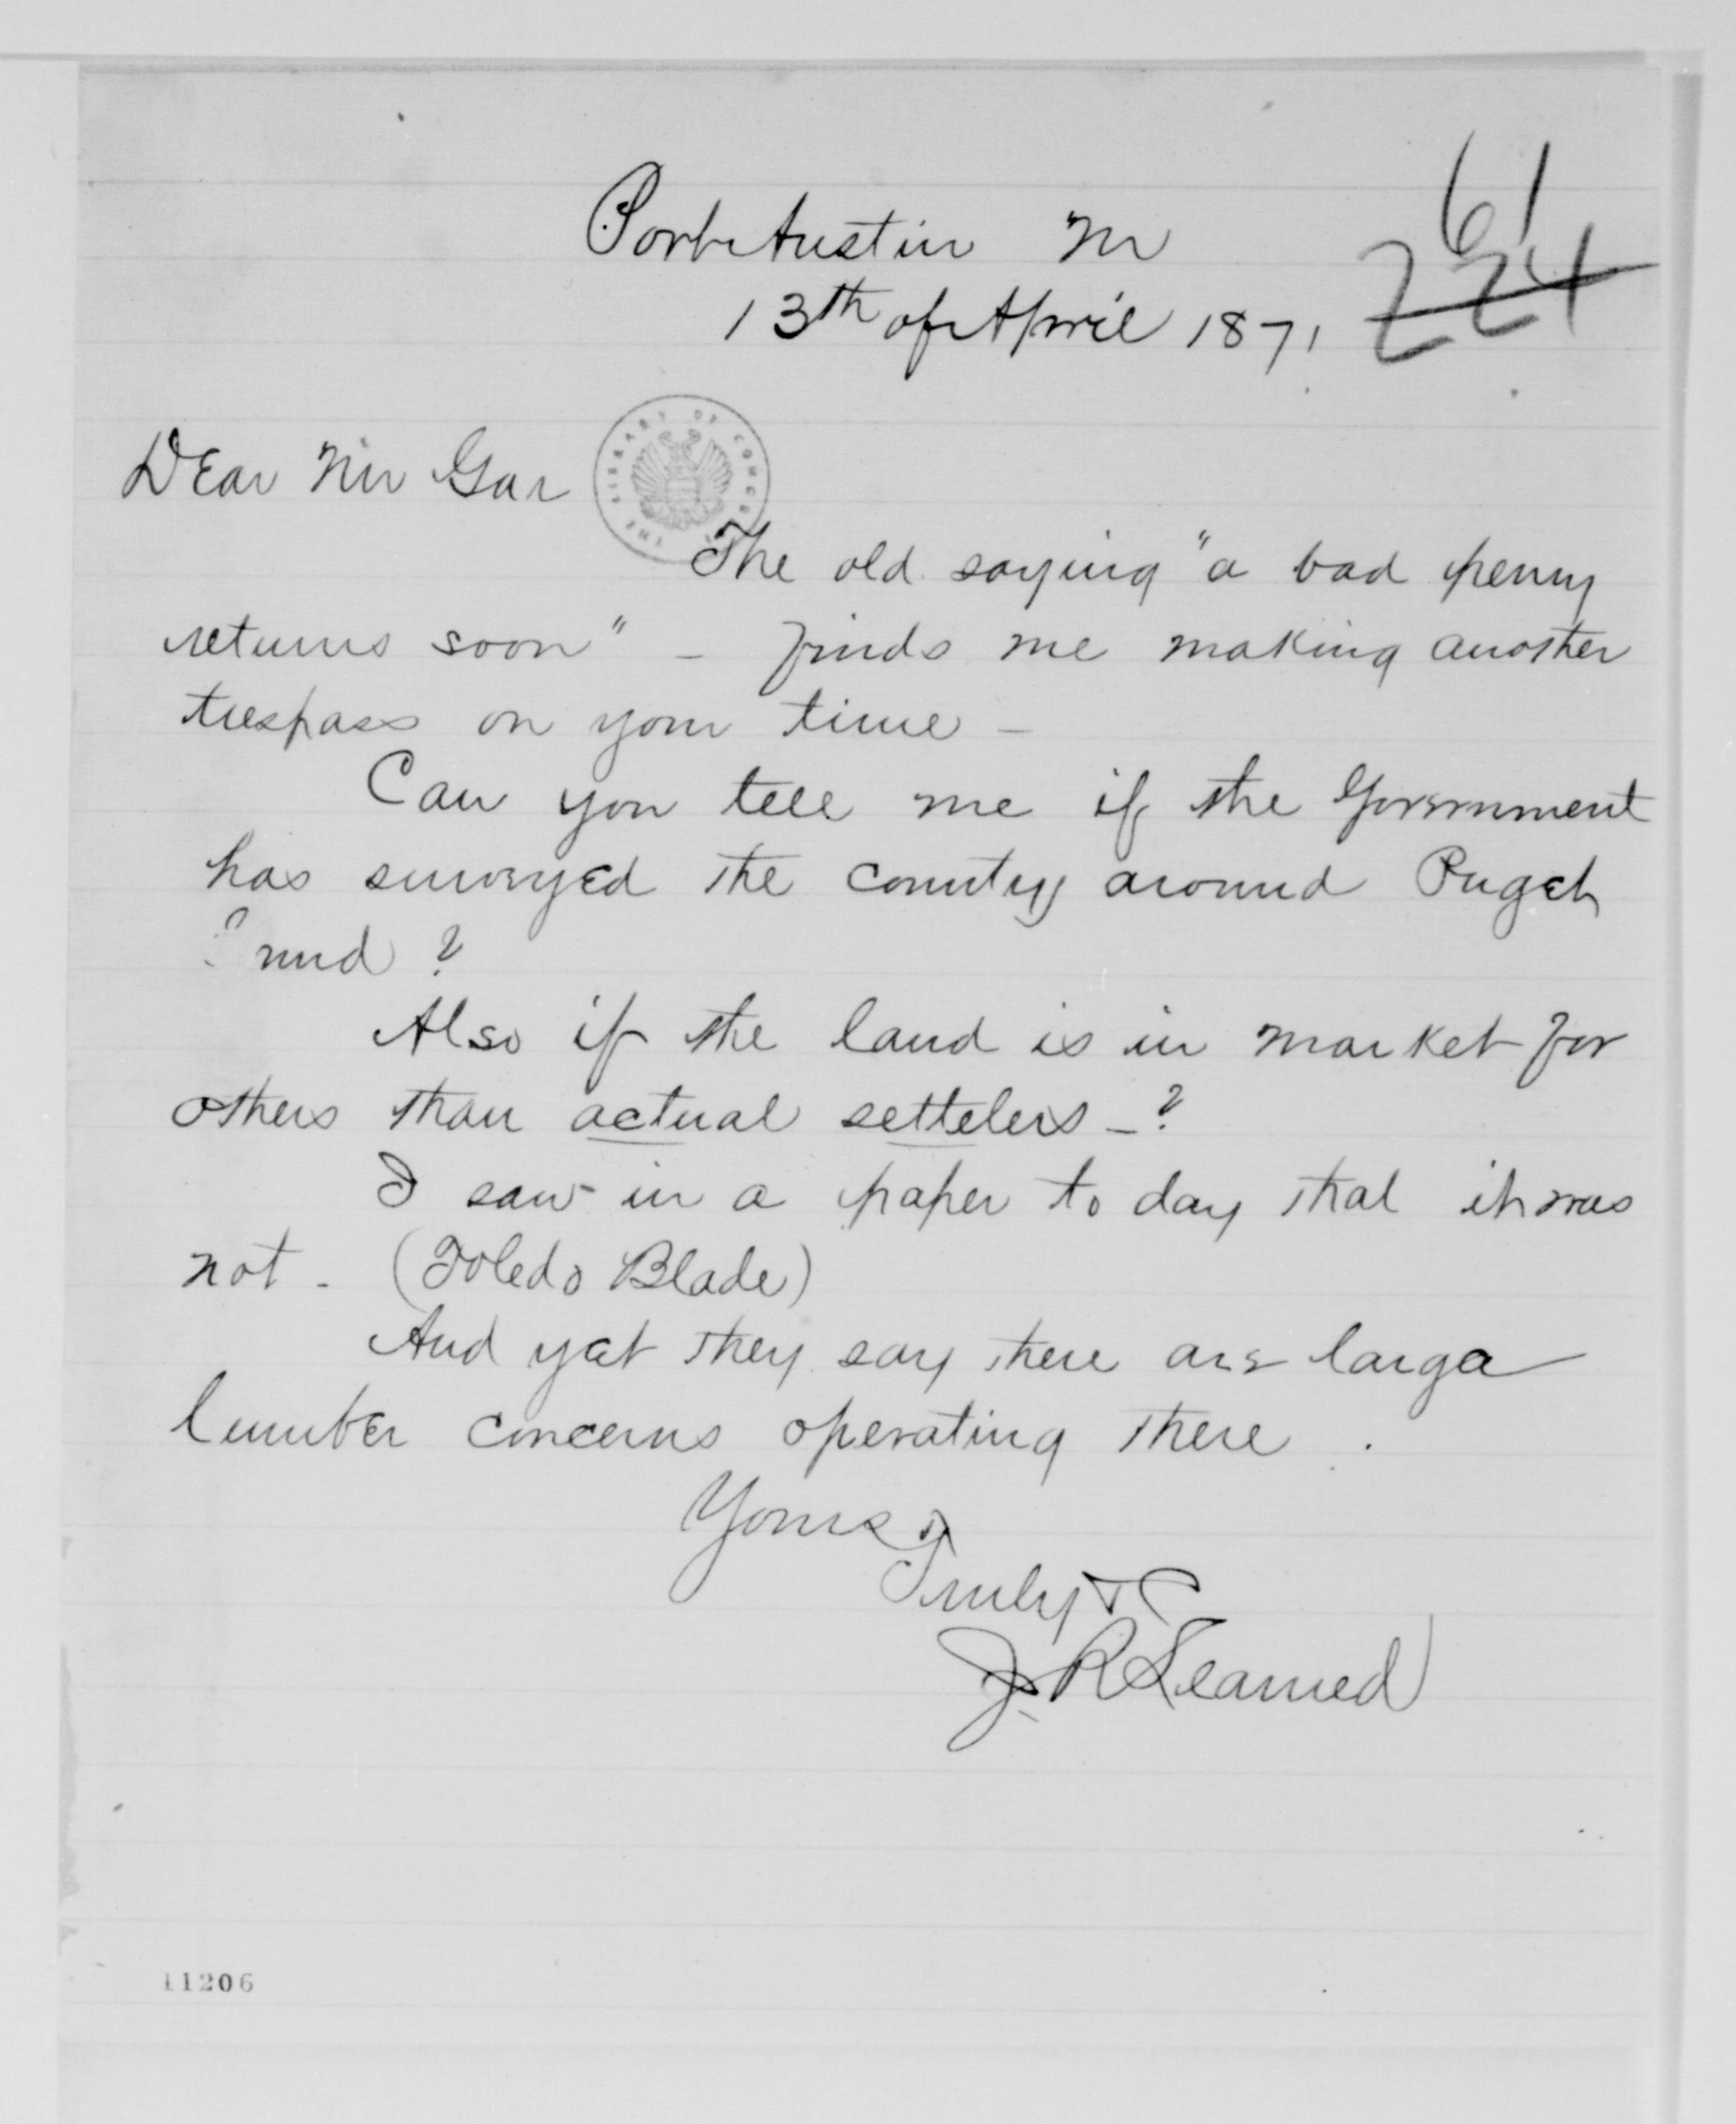 61
224
Port Austin M
13th of April 1871
Dear Mr Gar
THE LIBRARY OF CONGRESS
The old saying "a bad penny
returns soon" - finds me making another
trespass on your time -
Can you tell me if the Government
has surveyed the country around Puget
und ?
Also if the land is in market for
others than actual settelers - ?
I saw in a paper to day that it was
not - (Toledo Blade)
And yet they say there are large
lumber concerns operating there .
Yours
Truly &C
J. R Learned
11206